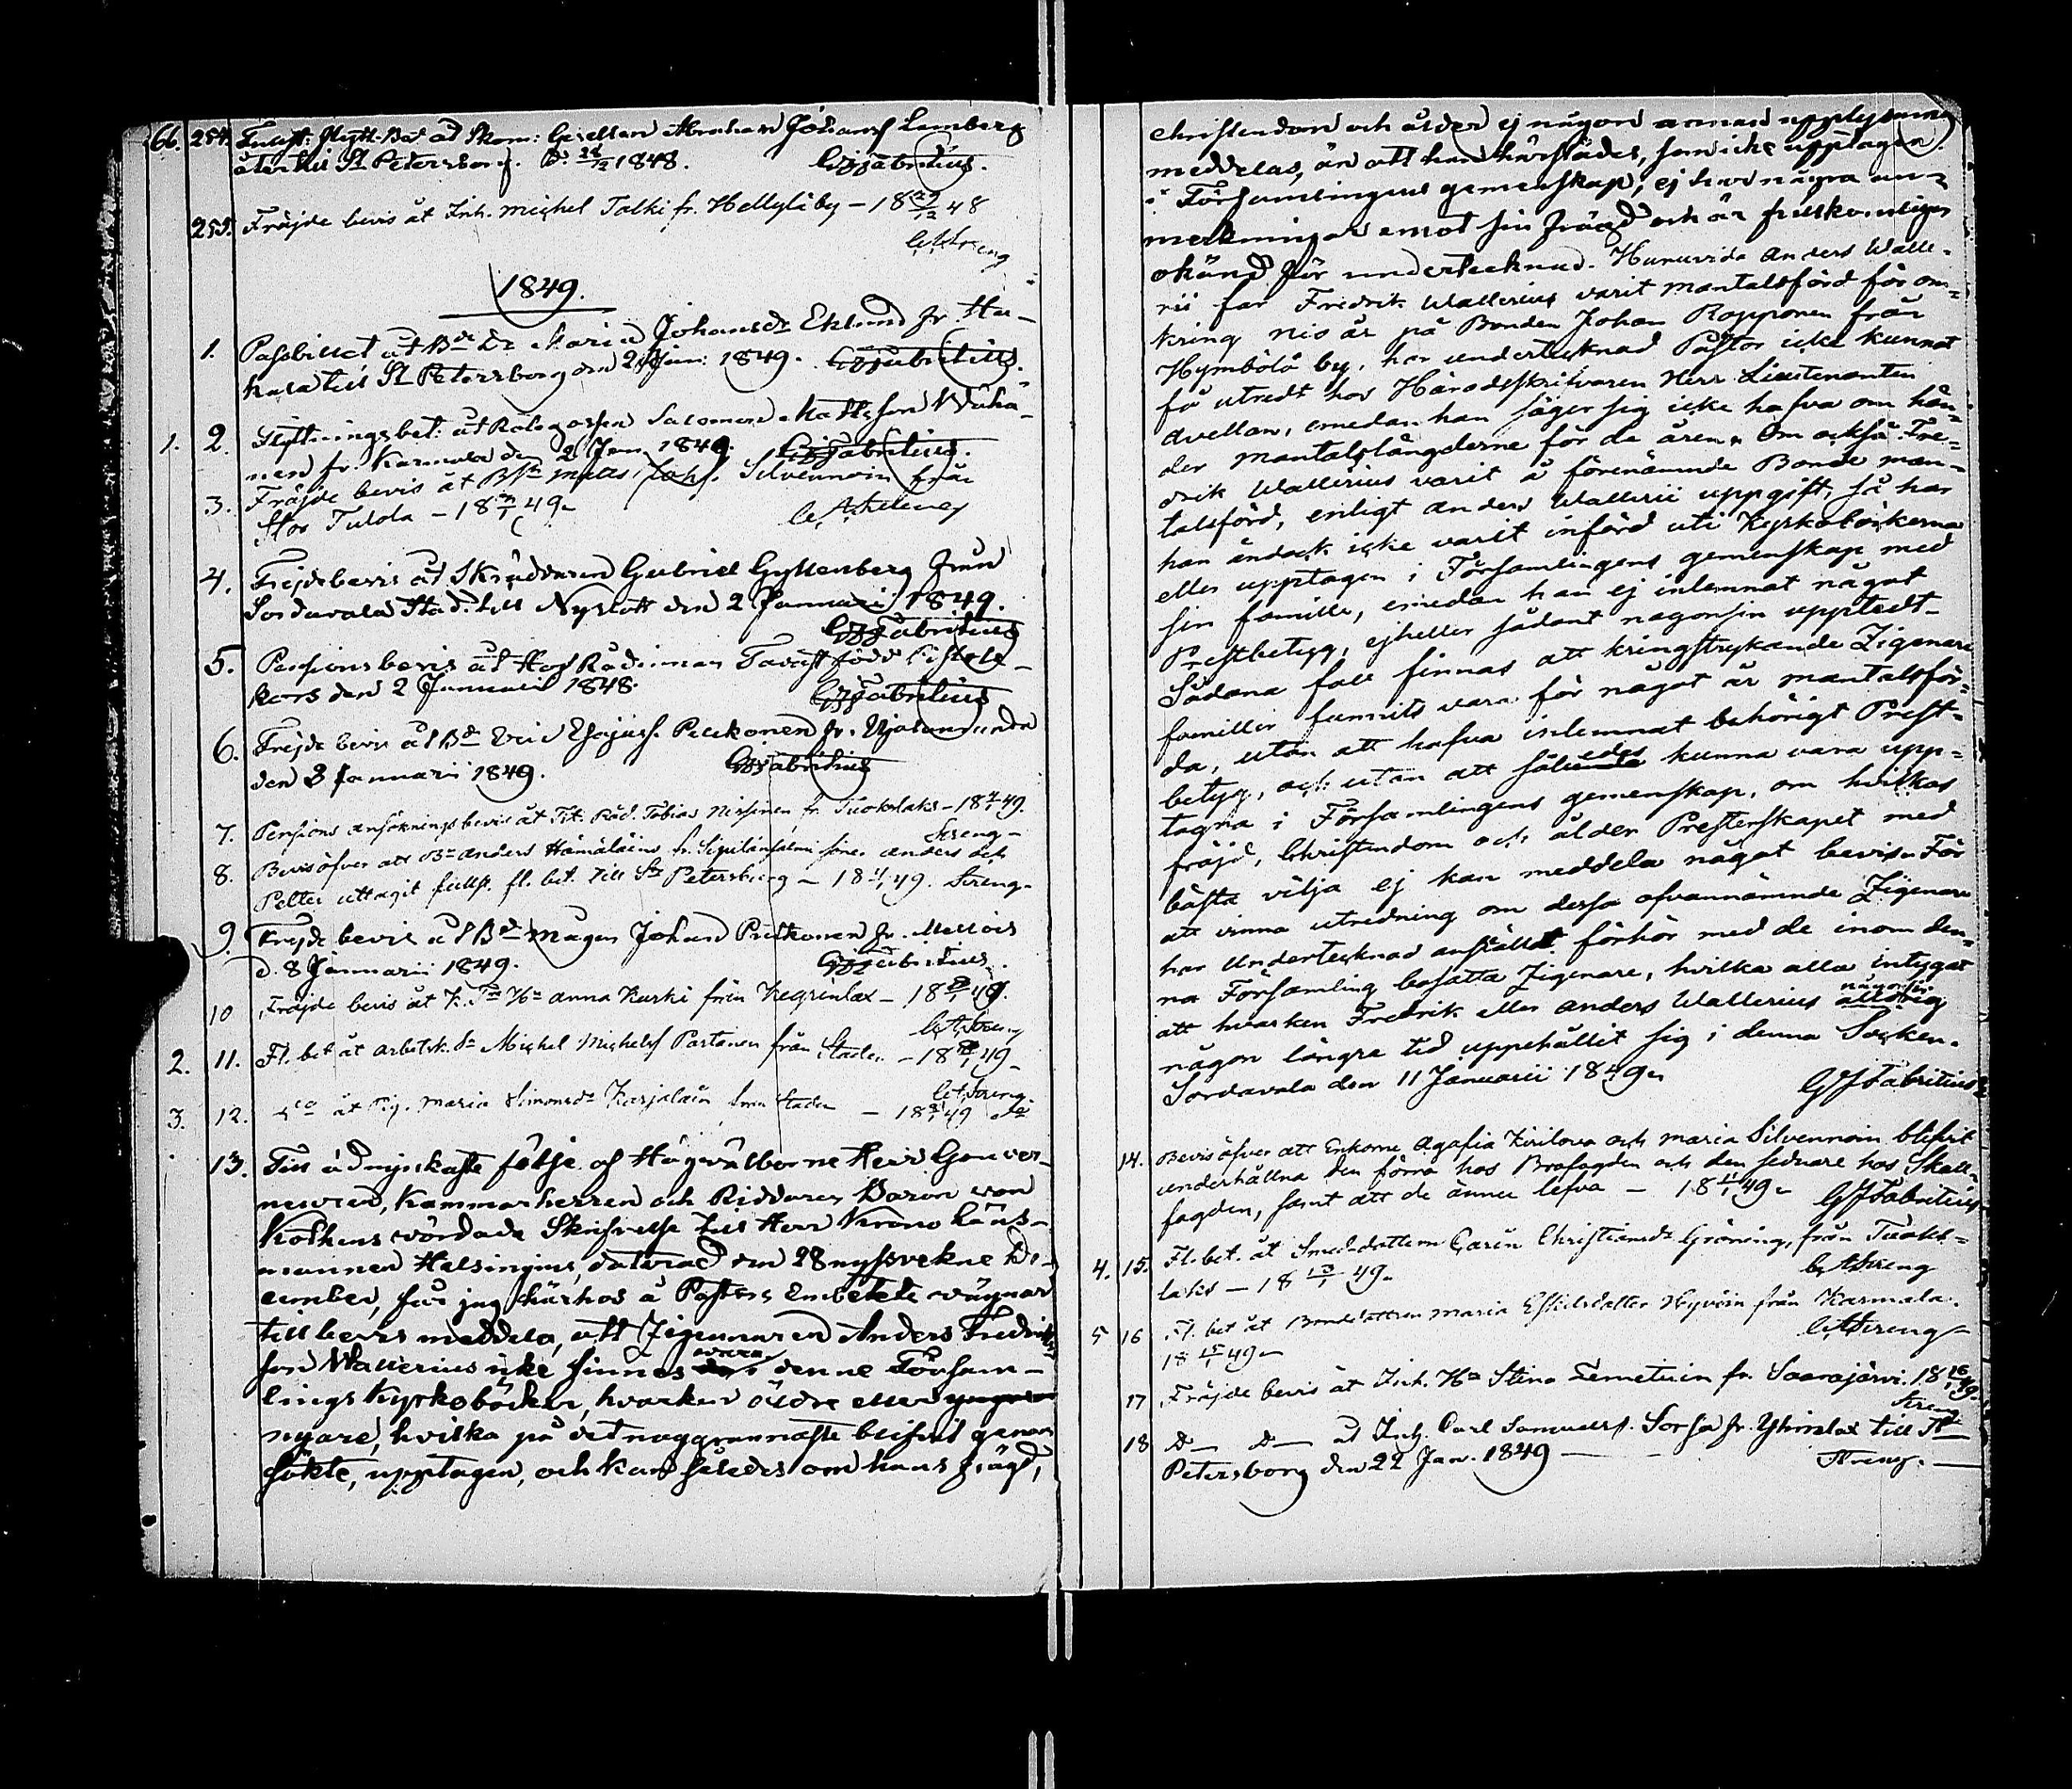 66. 254. Inrikst. Flytt. Bet. åt Skom: Gesellen Abraham Johansf Lemberg
åter till St Petersborg. D. 28/12 1848. GJFabritius.
255. Fräjde bevis åt Inh. Michel Talki fr. Hellylä by – 18 29/12 48
CAStreng
1849.
1. Passbillet åt Bde Dr Maria Johansdr Eklund fr. Ha-
till St Petersborg den 2 Jan: 1849. GJFabritius.
1. 2. Flyttningsbet. åt Salomon Mattsson Wäha-
nen fr. Karmala den 2 Jan 1849. GJFabritius.
3. Fräjde bevis åt Bsn Matts Johsf. Silvennoin från
Stor Tulola – 18 2/1 49 –
4. Frejdebevis åt Skräddaren Gabriel Gyllenberg från
Sordavala Stad till Nyslott den 2 Januari 1849.
GJFabritius
5. Pensionsbevis åt Hof Rådinnan Tavast född
den 2 Januarii 1848. GJFabritius
6. Frejde bevis åt Bde Esajasf. Pulkonen fr.
den 3 Januarii 1849. GJFabritius
7. Pensions ansöknings bevis åt Tit. Råd. Tobias Nissinen fr. Tuokslaks – 18 4/1 49.
Streng –
8. Bevis öfver att Bn Anders Hämäläins fr. söner Anders och
Petter uttagit fullst. fl. bet. till St Petersburg – 18 4/1 49. Streng –
9. Frejde bevis åt Bde Mågen Johan Pulkonen fr.
d. 8 Januarii 1849. GJFabritius.
10 Fräjde bevis åt Hn Anna Kurki från Kegrinlax – 18 49.
CAStreng
2. 11. Fl. bet åt arbetsk. Sn Michel Michelsf Partanen från Staden – 18 49 –
CAStreng.
3. 12. åt Pig. Maria Simonsdr Karjalain från Staden – 18 49 do
13. Till ödmjukaste följe af Högvälborne Herr Gouver-
neuren, Kammarherren och Riddaren Baron von
Kothens vördade Skrifvelse till Herr Krono Läns-
mannen Helsingius, daterad den 28 nyssvekne De-
cember, får jag härhos å Pastors Embetets vägnar
till bevis meddela, att Zigenaren Anders Fredriks-
son Wallerius icke finnes vara denne Försam-
lings Kyrkoböcker, hvarken äldre eller yngre
nyare, hvilka på det noggrannaste blifvit genom
sökte, upptagen, och kan således om hans fräjd,
christendom och ålder ej någon annan upplysning
meddelas, än att han härstädes, som icke upptagen
i Församlingens gemenskap, ej har några an-
merkningar emot sin fräjd och är fullkomligen
okänd för undertecknad. Huruvida Anders Walle-
rii far Fredrik Wallerius varit mantalsförd för om-
kring nio år på Bonden Johan Ropponen från
Hymbölä by, har undertecknad Pastor icke kunnat
få utredt hos Häradsskrifvaren Herr Lieutenanten
Avellan, emedan han säger sig icke hafva om hän-
der Mantalslängderne för de åren. Om också Fre-
drik Wallerius varit å förenämnde Bonde man-
talsförd, enligt Anders Wallerii uppgift, så har
han ändock icke varit införd uti Kyrkoböckerna
eller upptagen i Församlingens gemenskap med
sin familie, emedan han ej inlemnat något
Prestbetyg, ejheller sådant någonsin upptedt.
Sådana fall finnas att kringstrykande Zigenare
familier funnits vara för något år mantalsför-
da, utan att hafva inlemnat behörigt Prest-
betyg, och utan att således kunna vara upp-
tagna i Församlingens gemenskap, om hvilkas
fräjd, Christendom och ålder Presterskapet med
bästa vilja ej kan meddela något bevis. För
att vinna utredning om dessa ofvannämnde Zigenare
har Undertecknad anställdt förhör med de inom den-
na Församling bosatta Zigenare, hvilka alla intygat
att hvarken Fredrik eller Anders Wallerius aldrig någonsin
någon längre tid uppehållit sig i denna Socken.
Sordavala den 11 Januarii 1849. GJFabritius
14. Bevis öfver att Enkorne Agafia Kirilova och Maria Silvennoin blifvit
underhållna den förra hos Brofogden och den sednare hos Skall-
fogden, samt att de ännu lefva – 18 11/1 49. GJFabritius
4. 15. Fl. bet. åt Smedsdottern Carin Christiansdr Gröning, från Tuoks-
laks – 18 13/1 49. CAStreng
5 16 Fl. bet åt Bondedottren Maria Eskelsdotter Hyvöin från Karmala.
18 15/1 49 – CAStreng
17 Fräjde bevis åt Inh. Hn Stina fr. Saarajärvi. 18 16/1 49.
Streng
18 D– D– åt Inh. Carl Samuelsf. Sorsa fr. till St
Petersborg den 22 Jan. 1849 – Streng. –